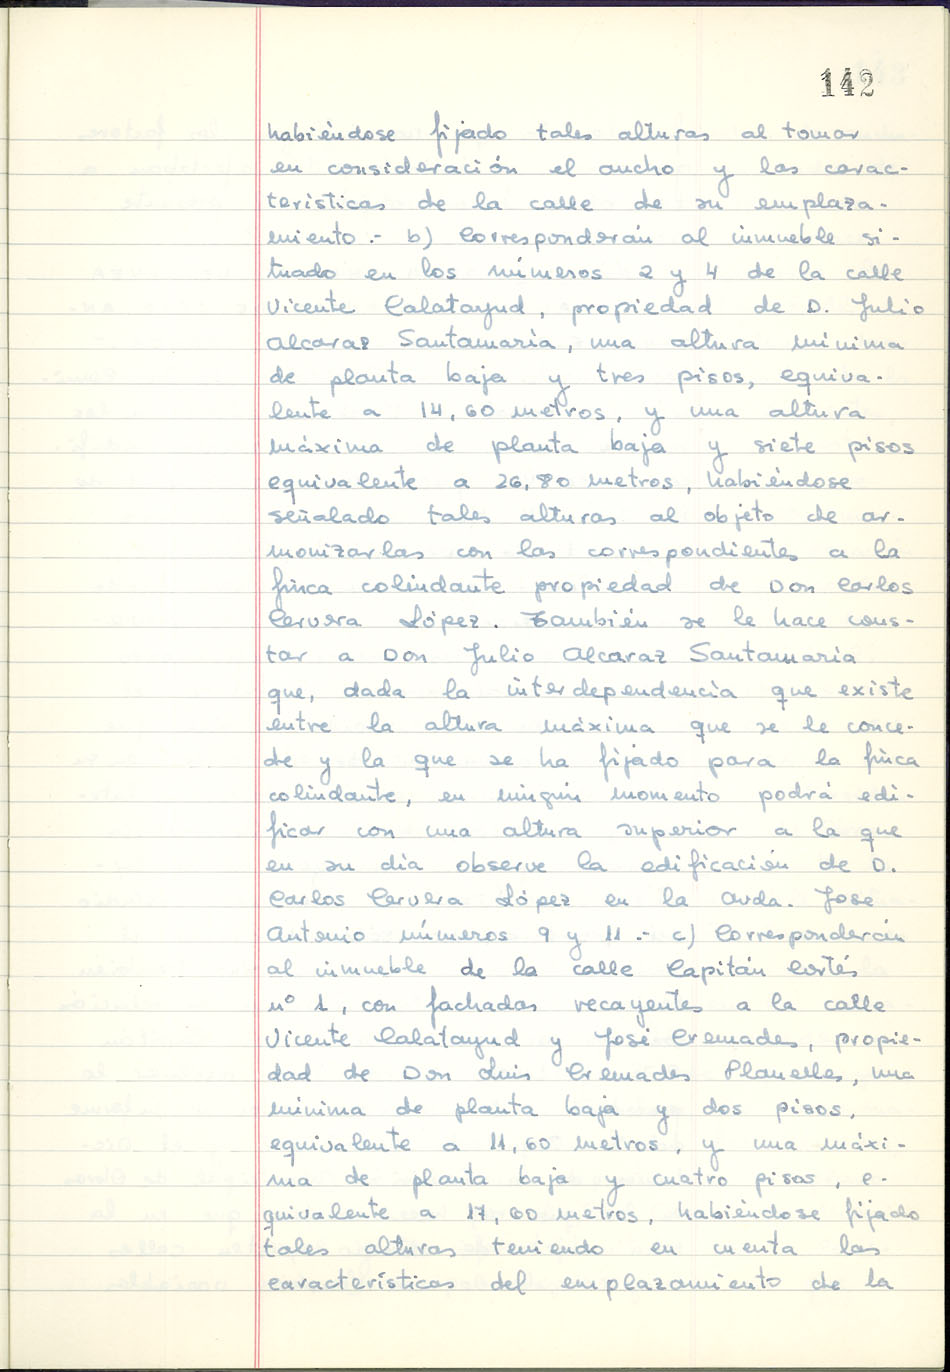 142
habiéndose fijado tales alturas al tomar
en consideración el ancho y las carac-
terísticas de la calle de su emplaza-
miento.- b) Corresponderán al inmueble si-
tuado en los números 2 y 4 de la calle
Vicente Calatayud, propiedad de D. Julio
Alcaraz Santamaría, una altura mínima
de planta baja y tres pisos, equiva-
lente a 14,60 metros, y una altura
máxima de planta baja y siete pisos
equivalente a 26,80 metros, habiéndose
señalado tales alturas al objeto de ar-
monizarlas con las correspondientes a la
finca colindante propiedad de Don Carlos
Cervera López. También se le hace cons-
tar a Don Julio Alcaraz Santamaría
que, dada la interdependencia que existe
entre la altura máxima que se le conce-
de y la que se ha fijado para la finca
colindante, en ningún momento podrá edi-
ficar con una altura superior a la que
en su día observe la edificación de D.
Carlos Cervera López en la Avda. José
Antonio números 9 y 11.- c) Corresponderán
al inmueble de la calle Capitán Cortés
nº 1, con fachadas recayentes a la calle
Vicente Calatayud y José Cremades, propie-
dad de Don Luis Cremades Planelles, una
mínima de planta baja y dos pisos,
equivalente a 11,60 metros, y una máxi-
ma de planta baja y cuatro pisos, e-
quivalente a 17,60 metros, habiéndose fijado
tales alturas teniendo en cuenta las
características del emplazamiento de la